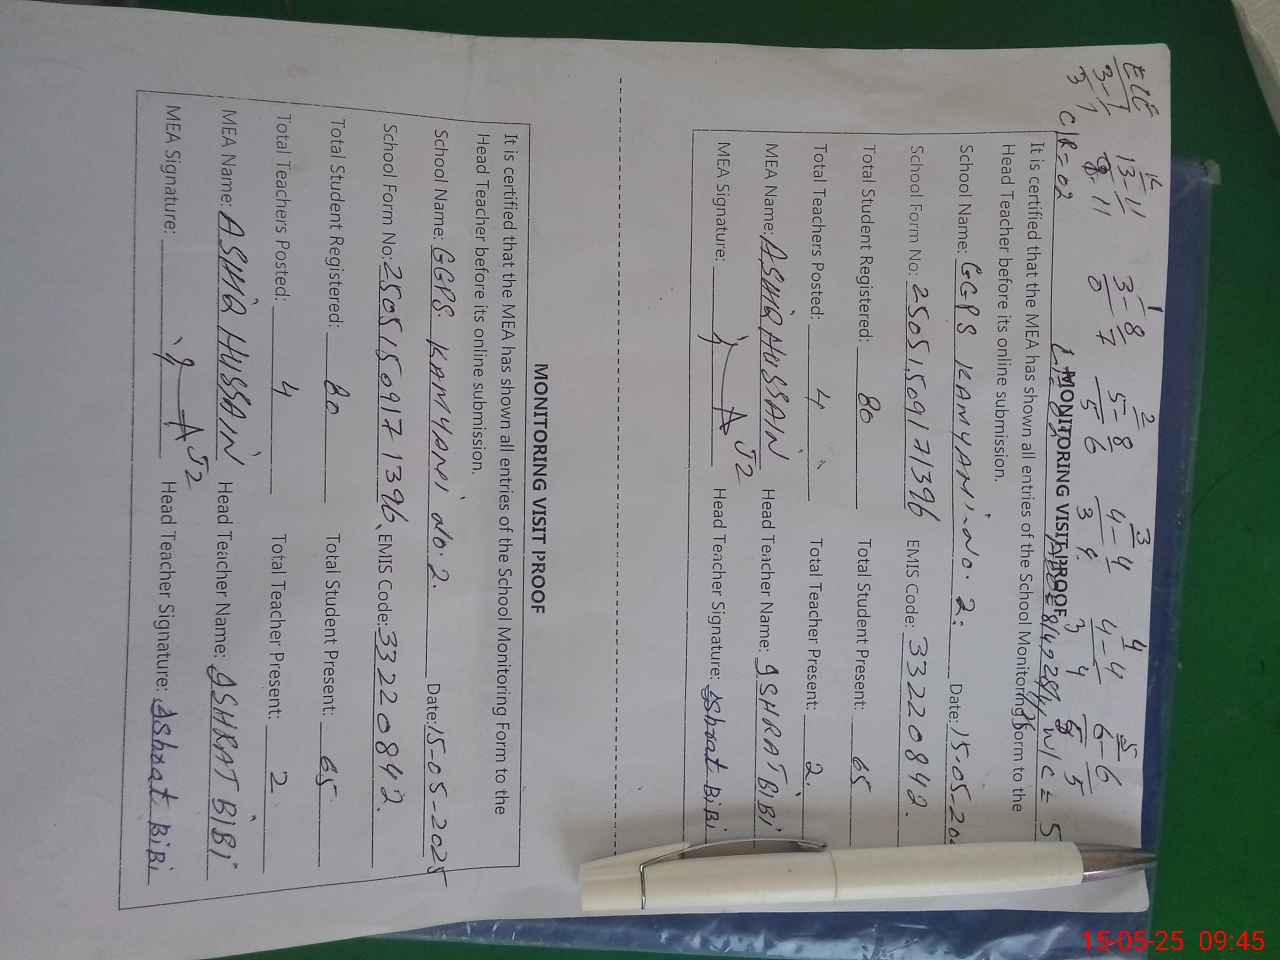 ECE K 1 2 3 4 5
3-1 13-11 3-8 5-8 4-4 4-4 6-6
3 1 8 11 0 7 5 6 3 9 3 4 6 5
C/R = 02 W/C = 5
MONITORING VISIT PROOF
It is certified that the MEA has shown all entries of the School Monitoring Form to the
Head Teacher before its online submission.
School Name: GGPS KAMYANI No. 2. Date: 15-05-20
School Form No: 25051509171396 EMIS Code: 33220842.
Total Student Registered: 80 Total Student Present: 65
Total Teachers Posted: 4 Total Teacher Present: 2.
MEA Name: ASHIQ HUSSAIN Head Teacher Name: ISHRAT BiBi
MEA Signature: J2 Head Teacher Signature: Ishrat BiBi
MONITORING VISIT PROOF
It is certified that the MEA has shown all entries of the School Monitoring Form to the
Head Teacher before its online submission.
School Name: GGPS KAMYANI No. 2. Date: 15-05-2025
School Form No: 25051509171396 EMIS Code: 33220842.
Total Student Registered: 80 Total Student Present: 65
Total Teachers Posted: 4 Total Teacher Present: 2
MEA Name: ASHIQ HUSSAIN Head Teacher Name: ISHRAT BiBi
MEA Signature: J2 Head Teacher Signature: Ishrat BiBi
15-05-25 09:45